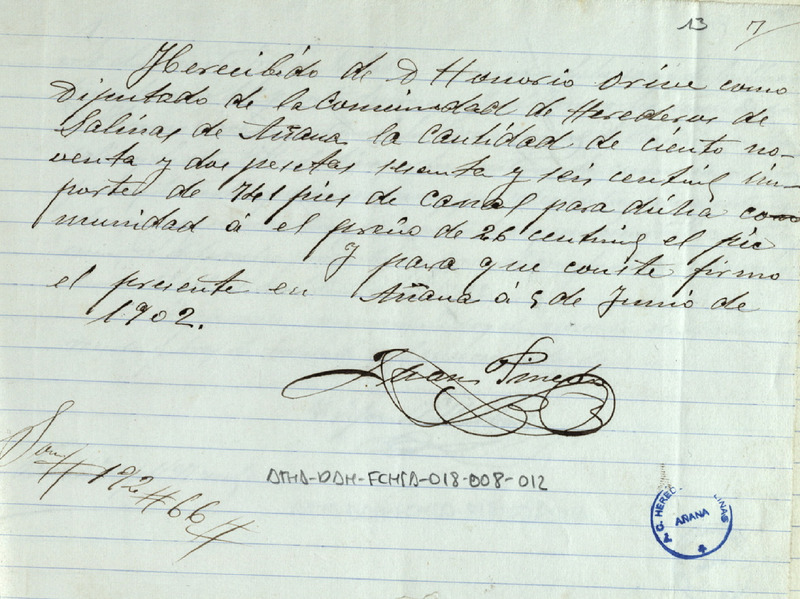 13 7
He recibido de D Honorio Orive como
Diputado de la Comunidad de Herederos de
Salinas de Añana la cantidad de ciento no-
venta y dos pesetas sesenta y seis centims im-
porte de 741 pies de canal para dicha co
munidad á el precio de 26 centims el pie
y para que conste firmo
el presente en Añana á 5 de Junio de
1902.
Juan Pineda
Son # 192 # 66 #
ATHA-DAH-FCHSA-018-008-012
AÑANA